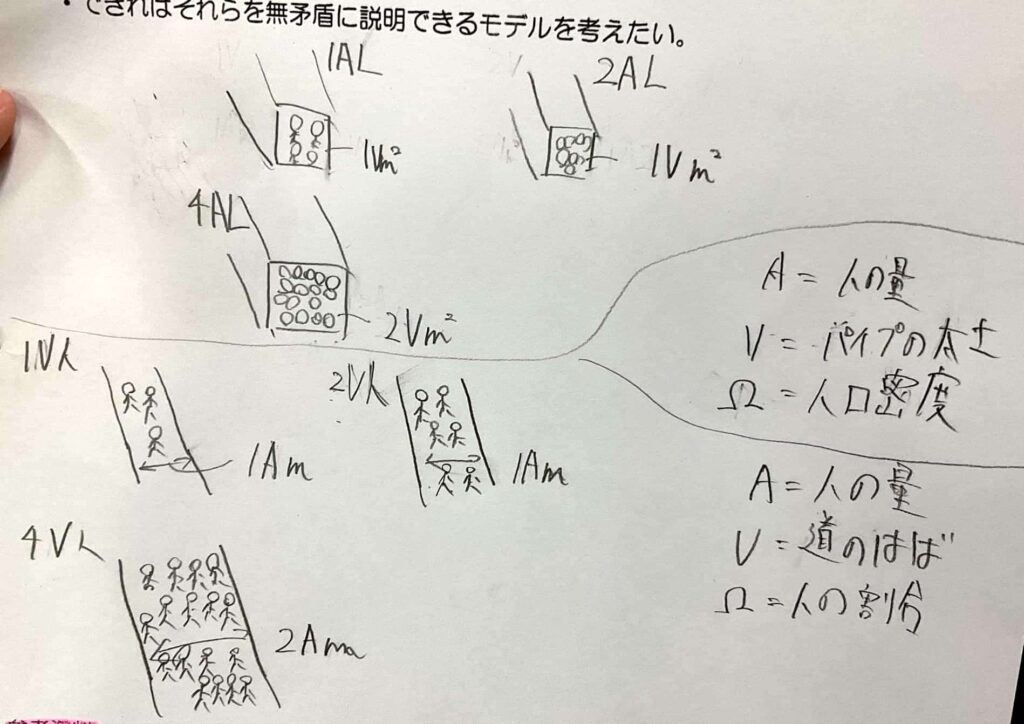 ・できればそれらを無矛盾に説明できるモデルを考えたい。
1AL
2AL
1Vm²
1Vm²
4AL
2Vm²
A = 人の量
V = パイプの太さ
Ω = 人口密度
1V人
2V人
1Am
1Am
A = 人の量
V = 道のはば
Ω = 人の割合
4V人
2Am